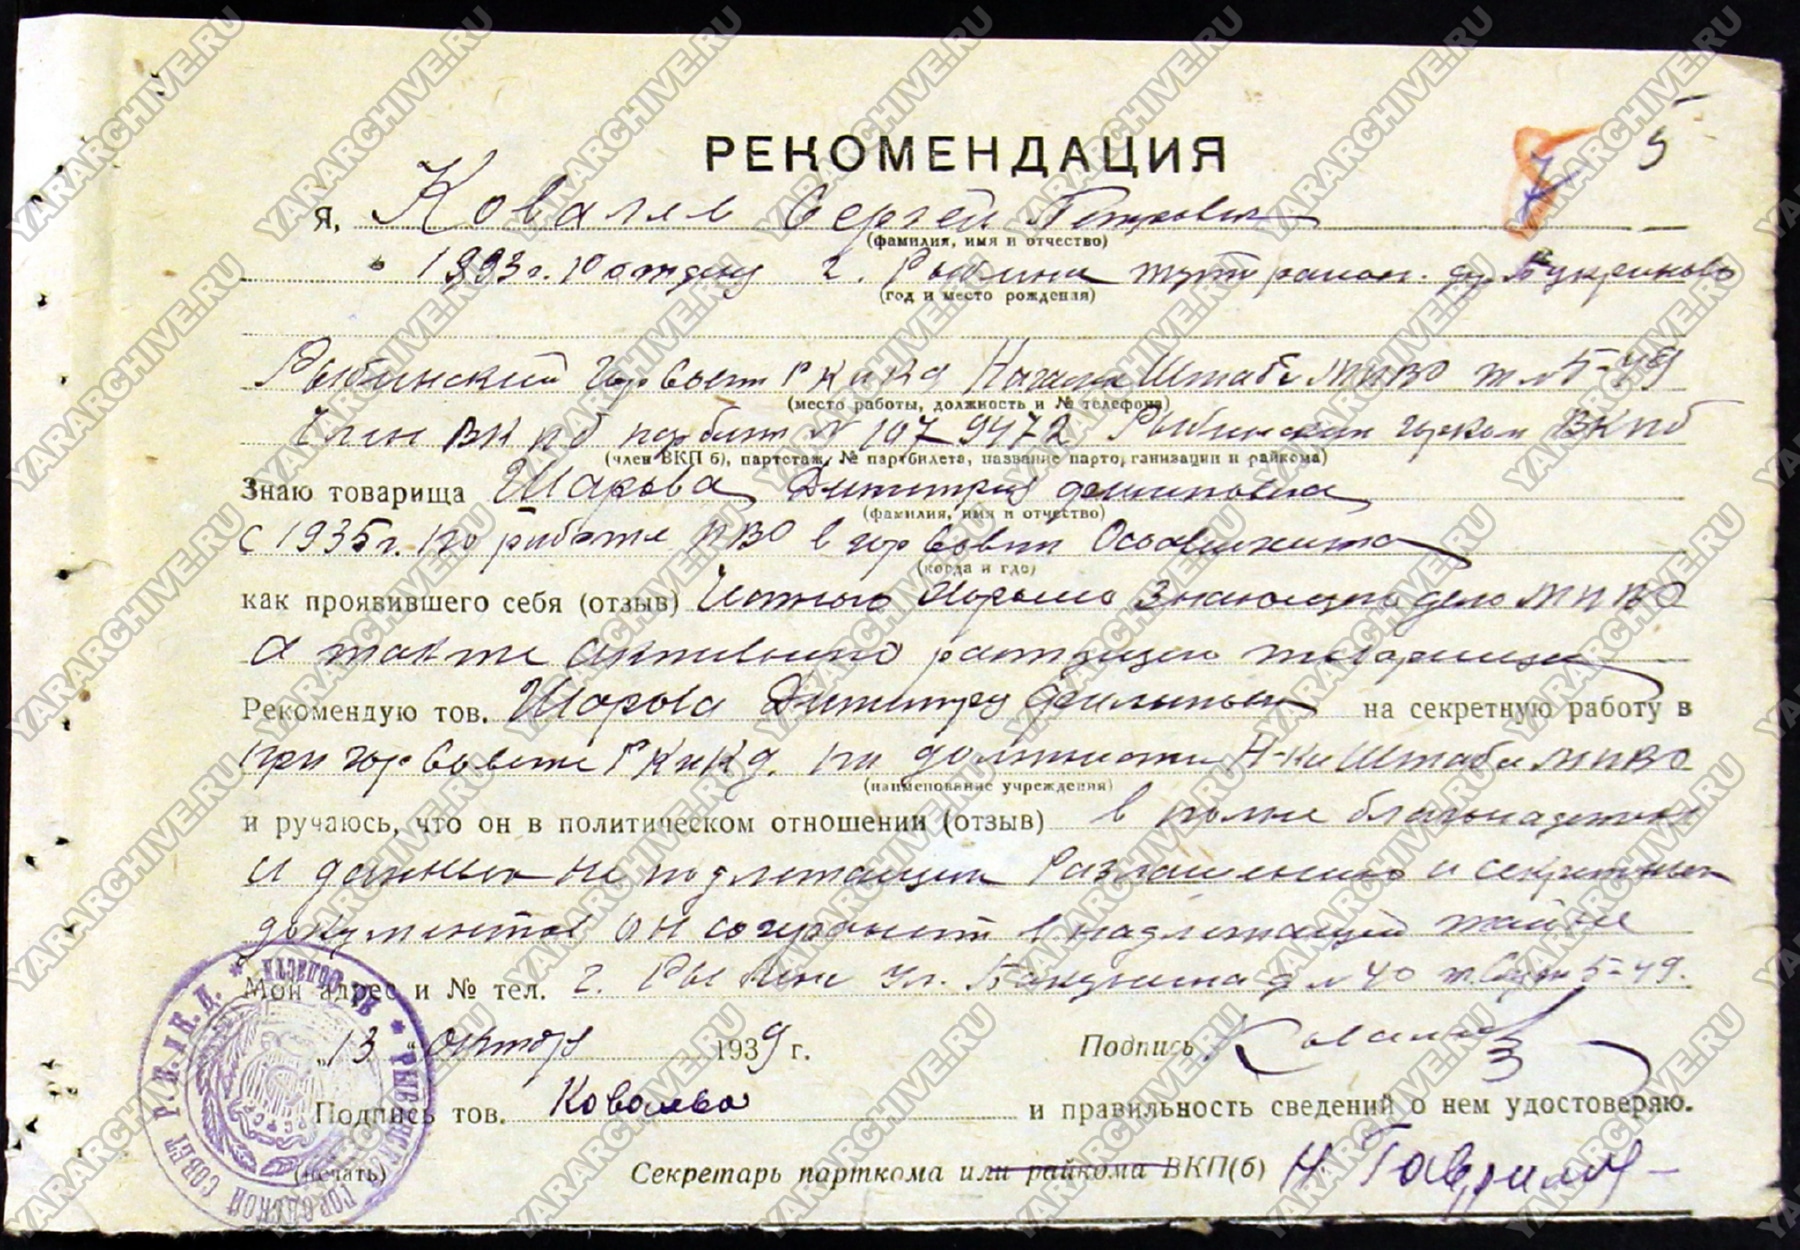 РЕКОМЕНДАЦИЯ
5
8
Я, Ковалев Сергей Петрович
(фамилия, имя и отчество)
1893 г. г. Рыбинск
(год и место рождения)
Рыбинский Горсовет РК и КД Начальн Штаба МПВО т. № 5-49
(место работы, должность и № телефона)
Член ВКПб парбилет № 1079472 Рыбинский горком ВКПб
(член ВКП б), партстаж, № партбилета, название парторганизации и райкома)
Знаю товарища Шарова Димитрия Филиповича
(фамилия, имя и отчество)
с 1935 г. по работе ПВО в горсовете Осоавиахима
(когда и где)
как проявившего себя (отзыв) Хорошо Знающего дело МПВО
а также активного растущего товарища
Рекомендую тов. Шарова Димитрия Филипович на секретную работу в
при горсовете РК и КД. на должность Н-ка Штаба МПВО
(наименование учреждения)
и ручаюсь, что он в политическом отношении (отзыв) вполне благонадежен
и данных не подлежащих Разглашению и секретных
документов он сохранит в надлежащей тайне
Мой адрес и № тел. г. Рыбинск ул. Бакунина д № 40 т. 5-49.
„13“ октября 1939 г. Подпись Ковалев
Подпись тов. Ковалева и правильность сведений о нем удостоверяю.
(печать) Секретарь парткома или райкома ВКП(б) Н. Гаврилов
РЫБИНСКИЙ ГОРОДСКОЙ СОВЕТ Р.К. и К.Д.
YARARCHIVE.RU